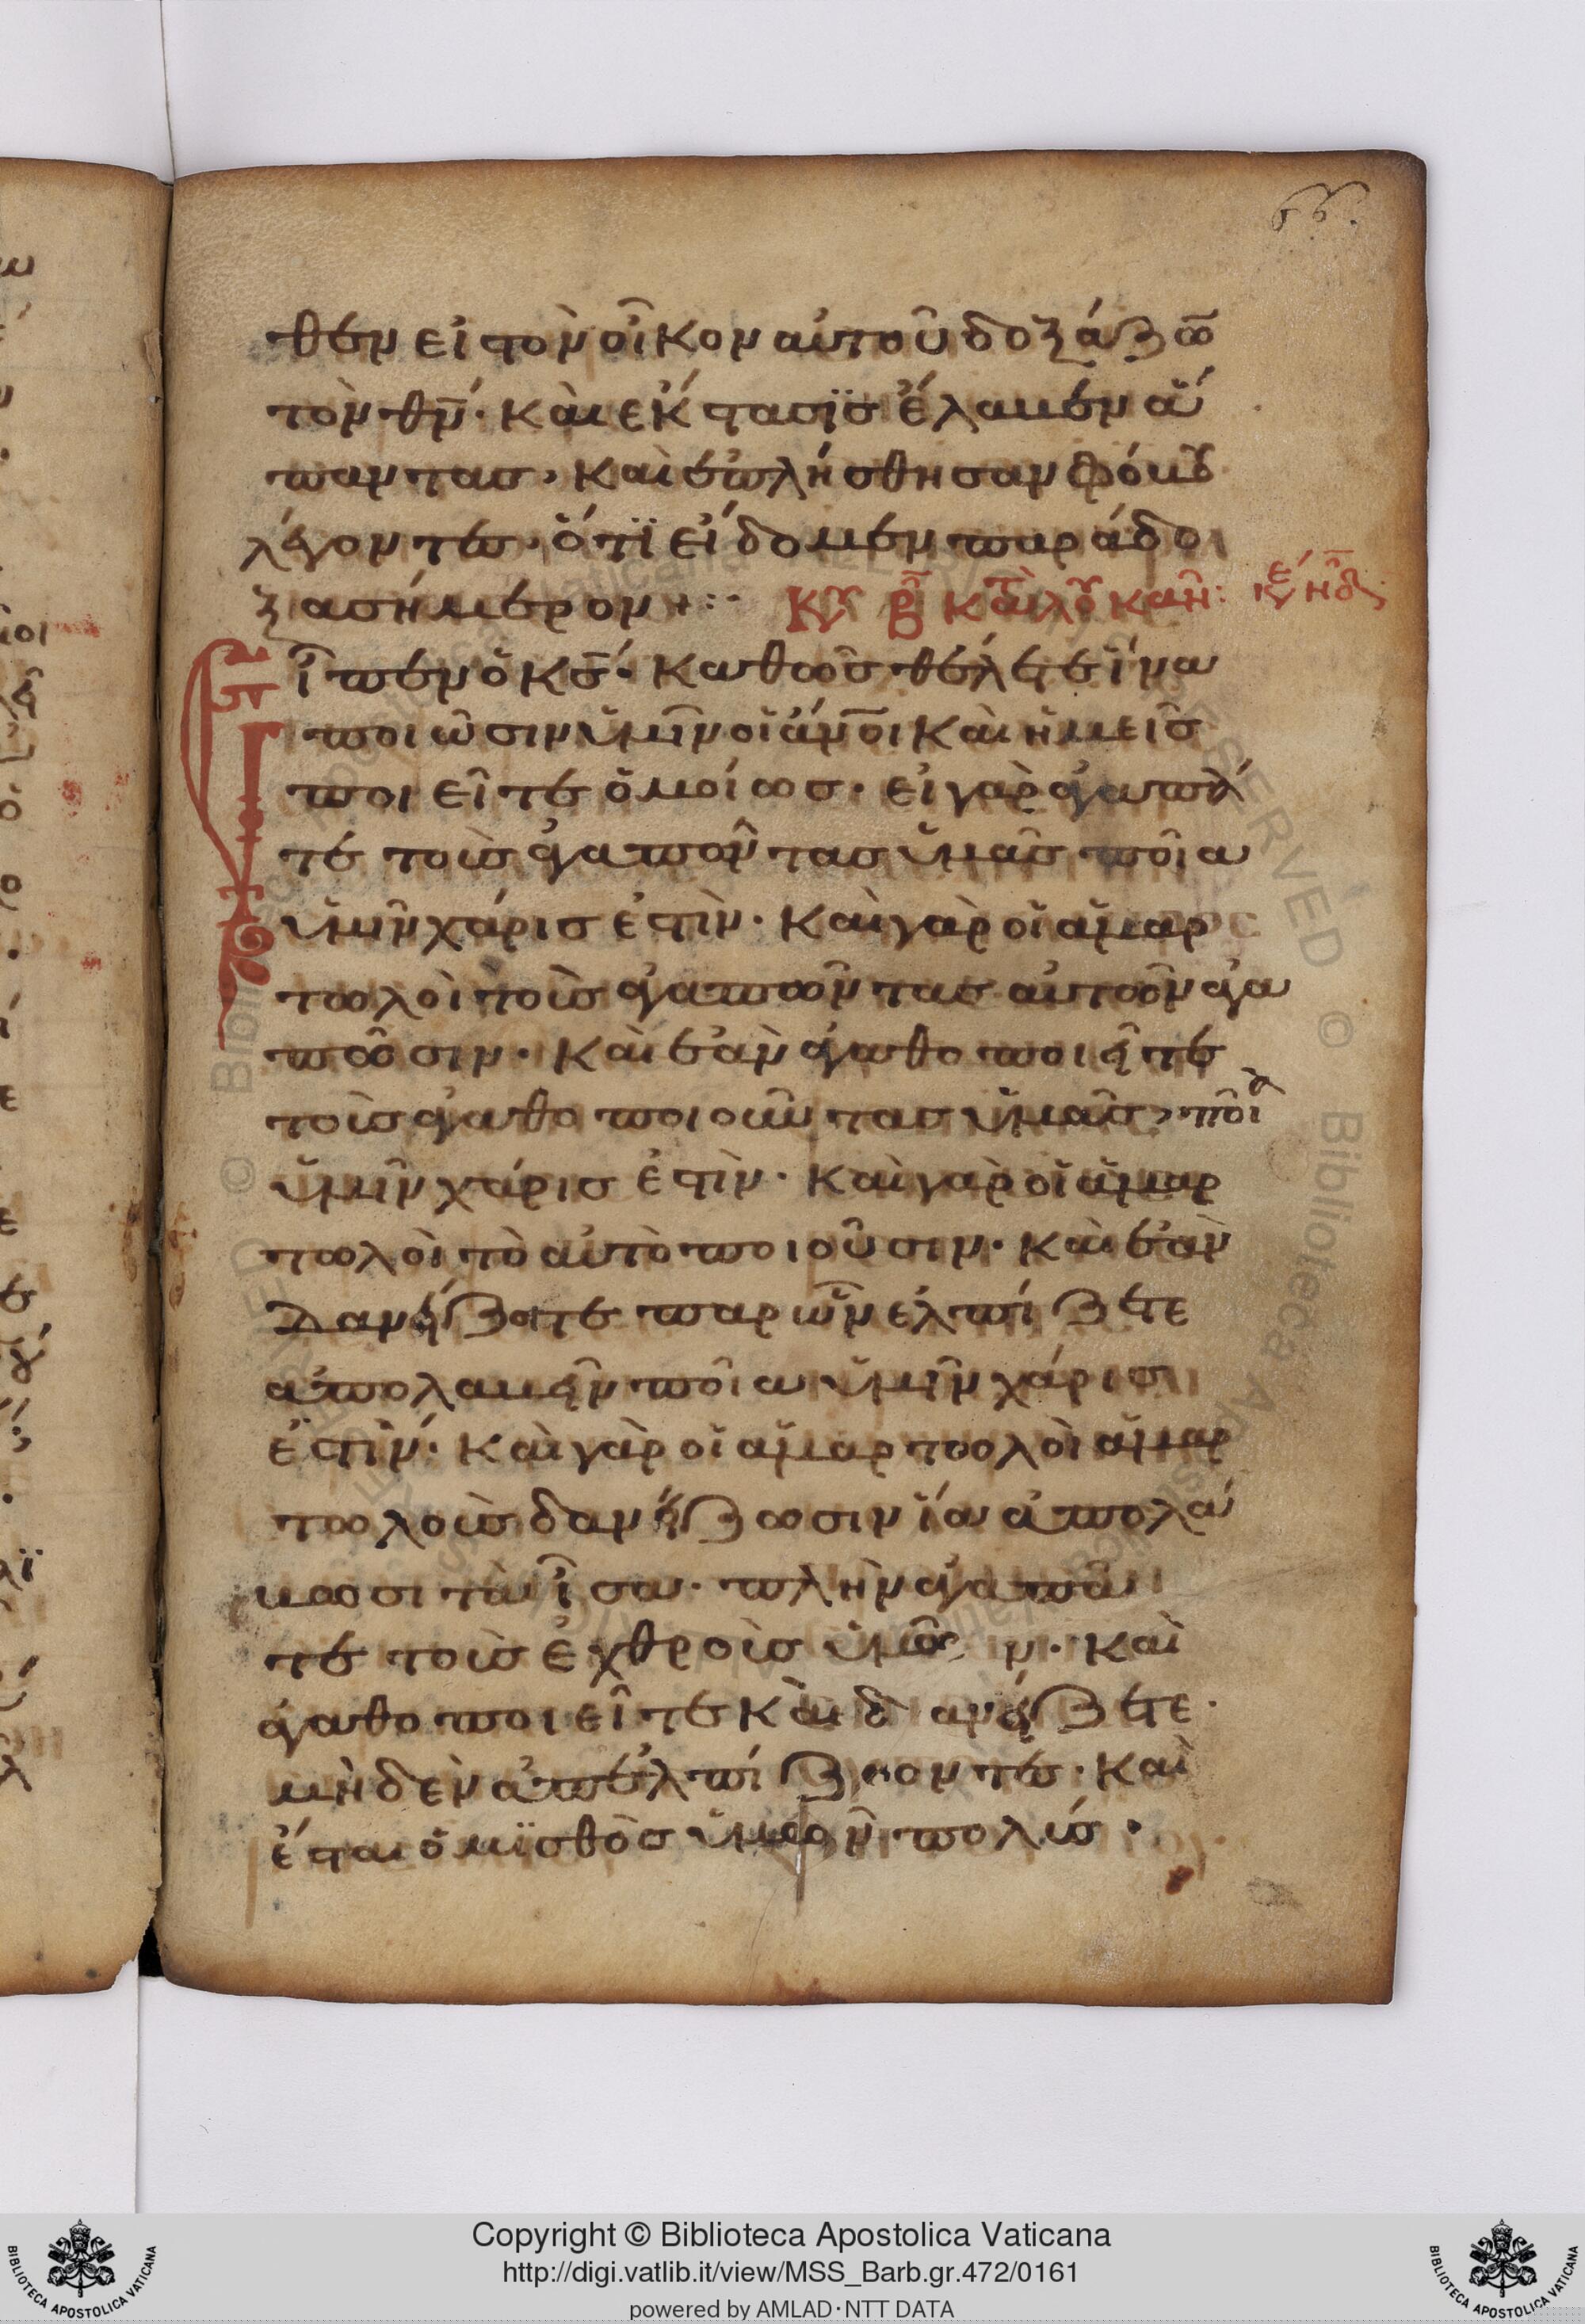 66.
θεν εἰ τὸν οἶκον αὐτοῦ δοξάζω
τὸν θν. Καὶ εκ στασϊσ ἔλαμεν ἅ
παντας, Καὶ ἐπλήσθησαν φόμου
λέγοντες. ὅτϊ εἴδομεν παράδο
ξα σήμερον
Κυ β κατὰ λου
ἶπεν ὁ κσ. Καθὼσ θέλετε ἵνα
ποιῶσιν ὑμῖν οἱ ἄνοι καὶ ἡμεῖσ
ποιεῖτε ὁμοίωσ. εἰ γὰρ ἀγαπᾶ
τε τοὺσ ἀγαπῶντασ ὑμᾶσ ποῖα
ὑμῖν χάρισ ἐστὶν. Καὶ γὰρ οἱ ἁμαρ
τωλοὶ τοὺσ ἀγαπῶντασ αὐτῶν ἀγα
πῶσιν. Καὶ ἐὰν ἀγαθοποιῆτε
τοὺσ ἀγαθοποιοῦντασ ὑμᾶσ, ποῖα
ὑμῖν χάρισ ἐστὶν. Καὶ γὰρ οἱ ἁμαρ
τωλοὶ τὸ αὐτὸ ποιοῦσιν. Καὶ ἐὰν
δανείζητε παρ ὧν ἐλπίζετε
ἀπολαμεῖν ποῖα ὑμῖν χάρισ
ἐστϊν. Καὶ γὰρ οἱ ἁμαρτωλοὶ ἁμαρ
τωλοὺσ δανείζωσιν ἵνα ἀπολά
μωσι τὰ ἶσα. πλὴν ἀγαπᾶ
τε τοὺσ ἐχθροὺσ ὑμῶν. Καὶ
ἀγαθοποιεῖτε Καὶ δανείζετε.
μὴδὲν ἀπελπίζοντεσ. Καὶ
ἔσται ὁ μϊσθὸσ ὑμῶν πολύσ.
Copyright © Biblioteca Apostolica Vaticana
http://digi.vatlib.it/view/MSS_Barb.gr.472/0161
powered by AMLAD·NTT DATA